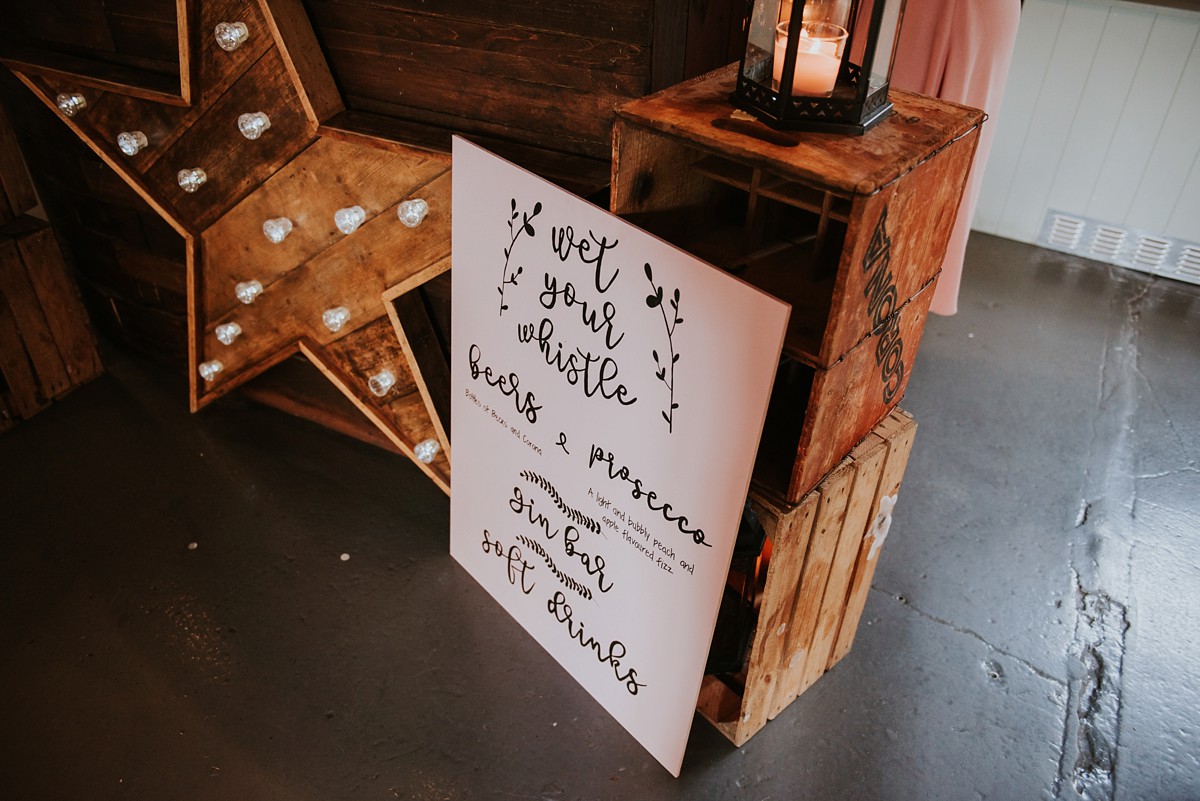 wet
your
whistle
beers & prosecco
Bottles of Becks and Corona
A light and bubbly peach and
apple flavoured fizz
gin bar
soft drinks
CORONA